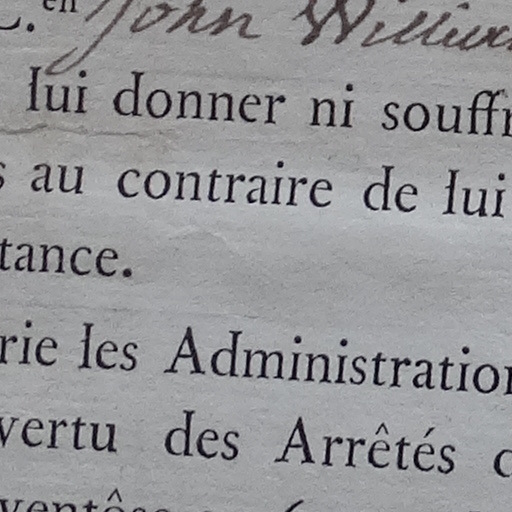 C.en John William
lui donner ni souffr
s au contraire de lui
tance.
rie les Administration
vertu des Arrêtés